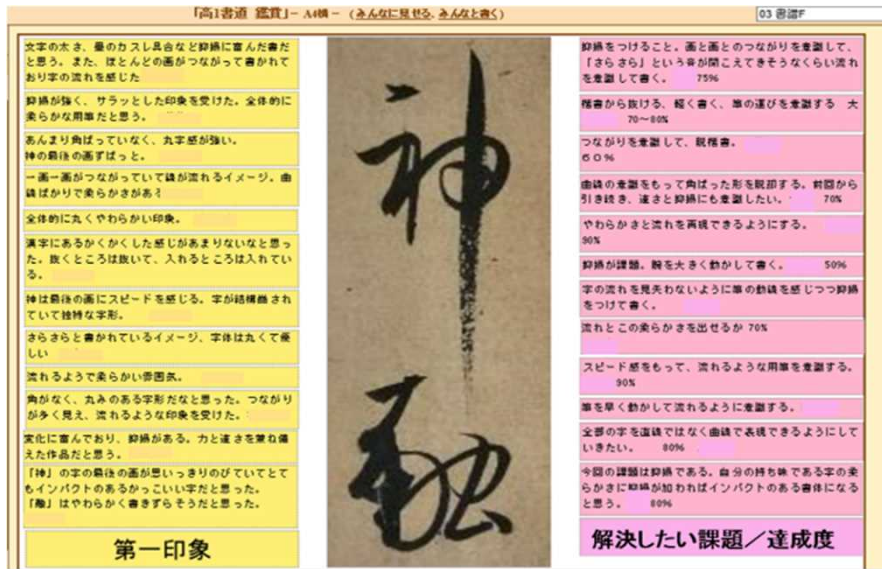 「高1書道 鑑賞」－ A4横 － （みんなに見せる、みんなと書く）
03 書譜F
文字の太さ、墨のカスレ具合など抑揚に富んだ書だ
と思う。また、ほとんどの画がつながって書かれて
おり字の流れを感じた
抑揚が強く、サラッとした印象を受けた。全体的に
柔らかな用筆だと思う。
あんまり角ばっていなく、丸字感が強い。
神の最後の画ずばっと。
一画一画がつながっていて線が流れるイメージ。曲
線ばかりで柔らかさがある
全体的に丸くやわらかい印象。
漢字にあるかくかくした感じがあまりないなと思っ
た。抜くところは抜いて、入れるところは入れてい
る。
神は最後の画にスピードを感じる。字が結構崩され
ていて独特な字形。
さらさらと書かれているイメージ、字体は丸くて優
しい
流れるようで柔らかい雰囲気。
角がなく、丸みのある字形だなと思った。つながり
が多く見え、流れるような印象を受けた。
変化に富んでおり、抑揚がある。力と速さを兼ね備
えた作品だと思う。
「神」の字の最後の画が思いっきりのびていてとて
もインパクトのあるかっこいい字だと思った。
「融」はやわらかく書きずらそうだと思った。
第一印象
神
融
抑揚をつけること。画と画とのつながりを意識して、
「さらさら」という音が聞こえてきそうなくらい流れ
を意識して書く。 75%
楷書から抜ける、軽く書く、筆の運びを意識する 大
70～80%
つながりを意識して、脱楷書。
６０％
曲線の意識をもって角ばった形を脱却する。前回から
引き続き、速さと抑揚にも意識したい。 70%
やわらかさと流れを再現できるようにする。
90%
抑揚が課題。腕を大きく動かして書く。 50%
字の流れを見失わないように筆の動線を感じつつ抑揚
をつけて書く。
流れとこの柔らかさを出せるか 70%
スピード感をもって、流れるような用筆を意識する。
90%
筆を早く動かして流れるように意識する。
全部の字を直線ではなく曲線で表現できるようにして
いきたい。 80%
今回の課題は抑揚である。自分の持ち味である字の柔
らかさに抑揚が加わればインパクトのある書体になる
と思う。 80%
解決したい課題／達成度